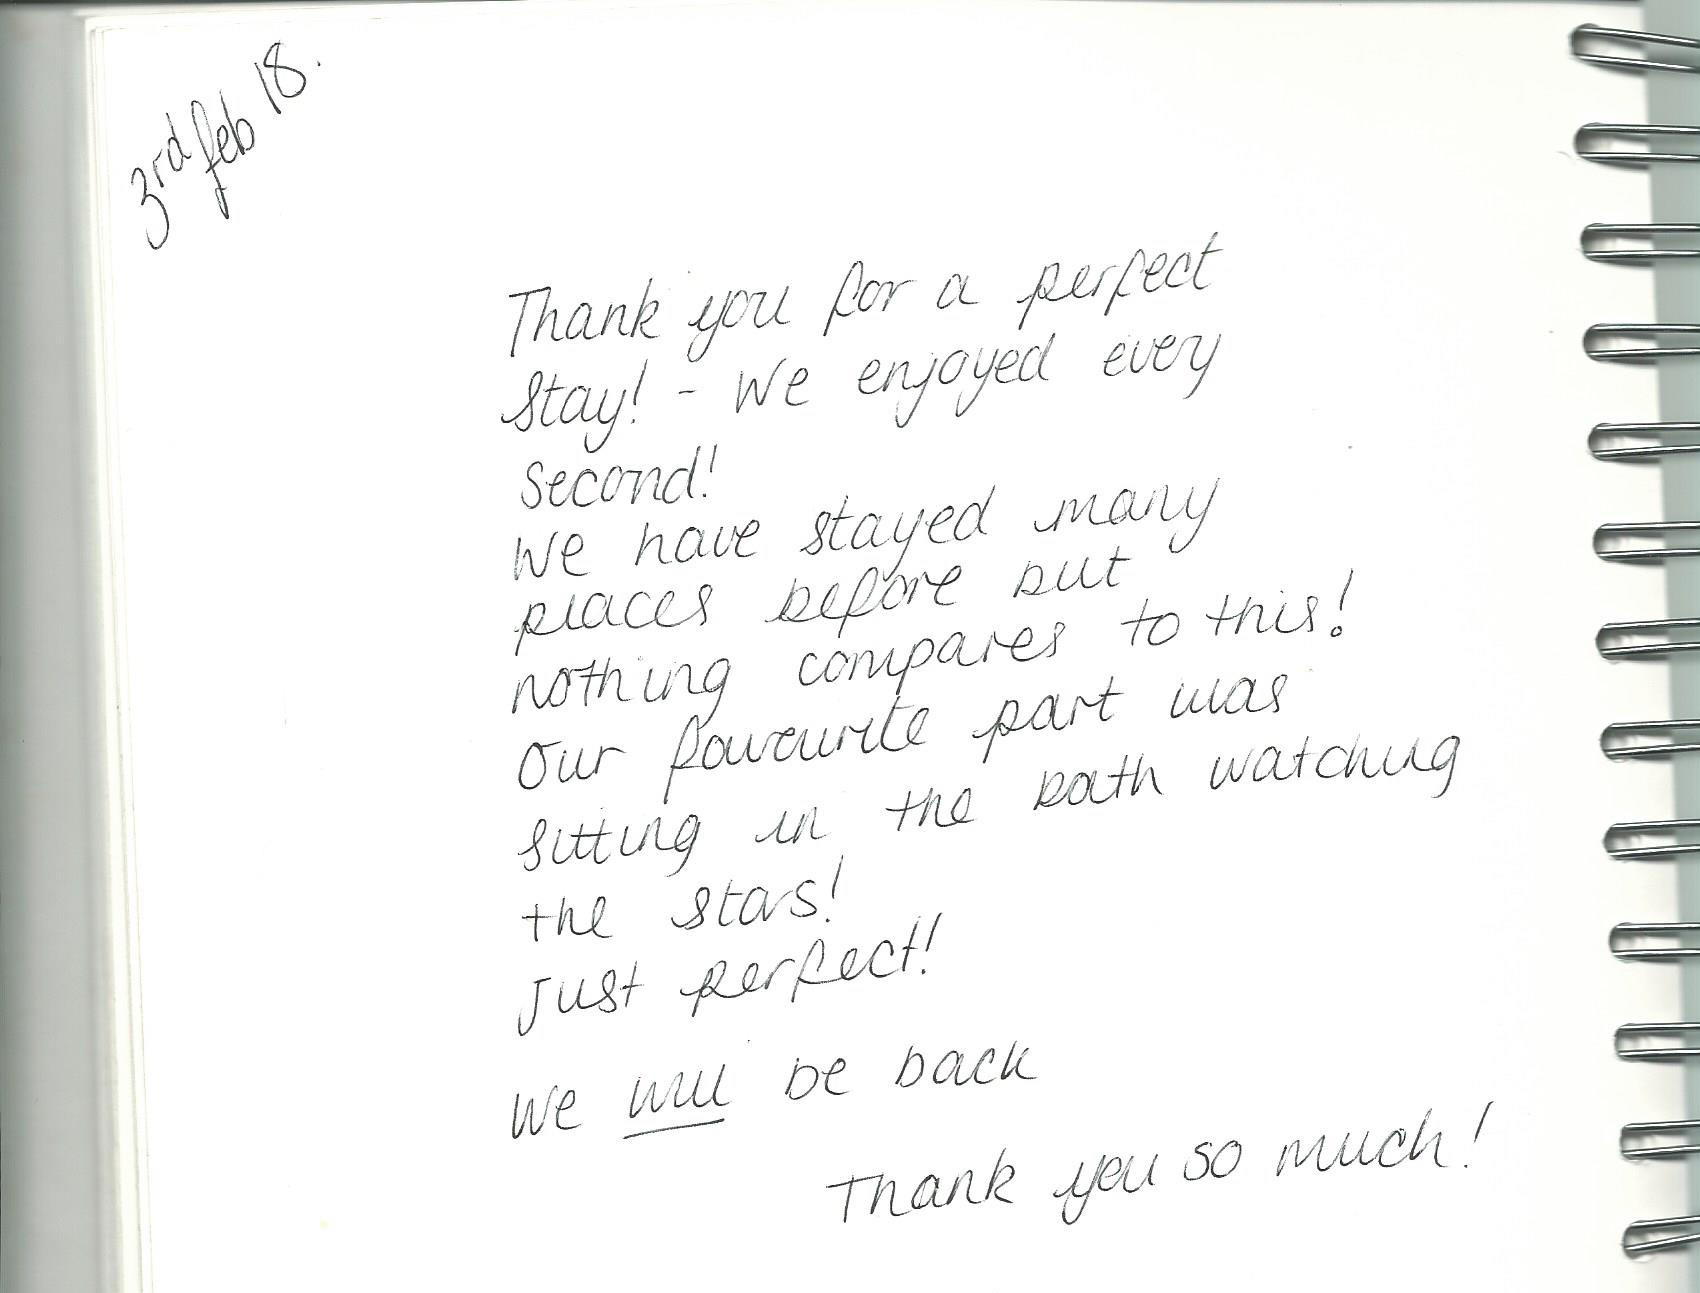 3rd feb 18.
Thank you for a perfect
Stay! - We enjoyed every
Second!
We have stayed many
places before but
nothing compares to this!
Our favourite part was
sitting in the bath watching
the stars!
Just perfect!
We will be back
Thank you so much!